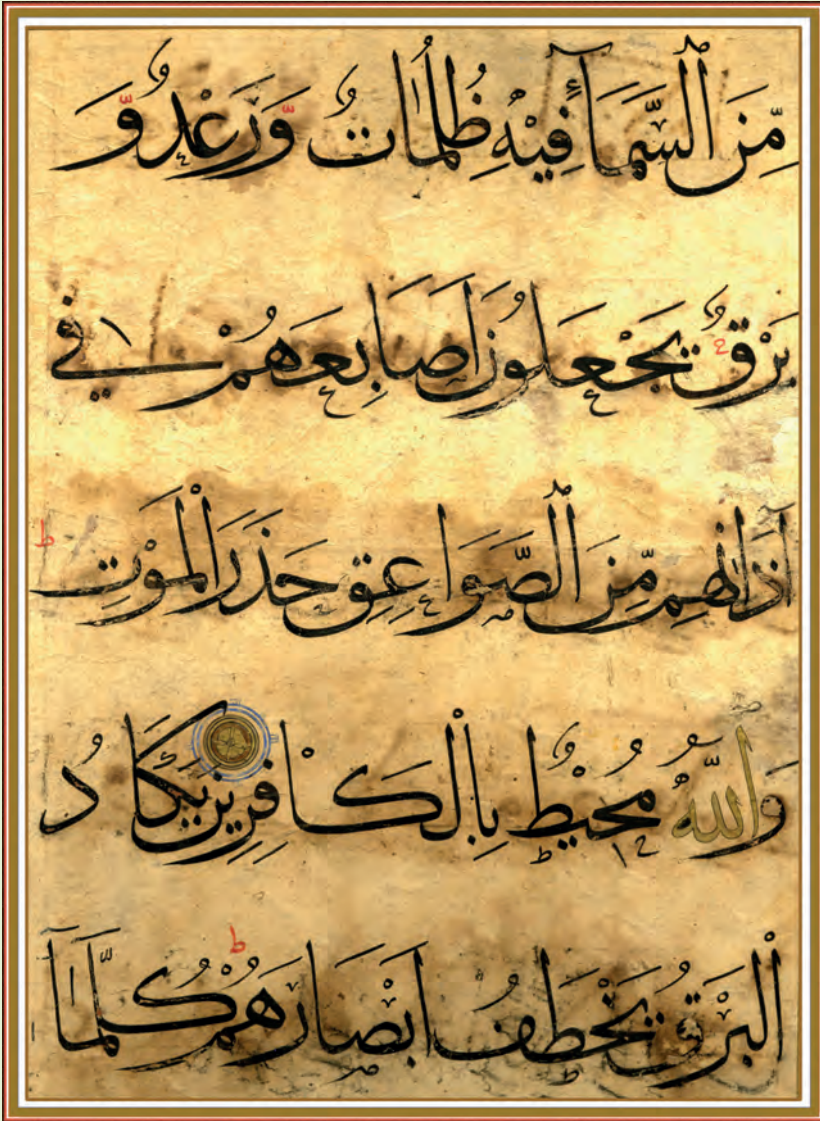 مِّنَ ٱلسَّمَآءِ فِيْهِ ظُلُمَاتٌ وَّرَعْدٌ وَّ
بَرْقٌ يَجْعَلُونَ اَصَابِعَهُمْ فِي
آذَانِهِم مِّنَ ٱلصَّوَاعِقِ حَذَرَ الْمَوْتِ ط
وَٱللّٰهُ مُحِيْطٌ بِالْكَافِرِينَ يَكَادُ
الْبَرْقُ يَخْطَفُ اَبْصَارَهُمْ ط كُلَّمَآ